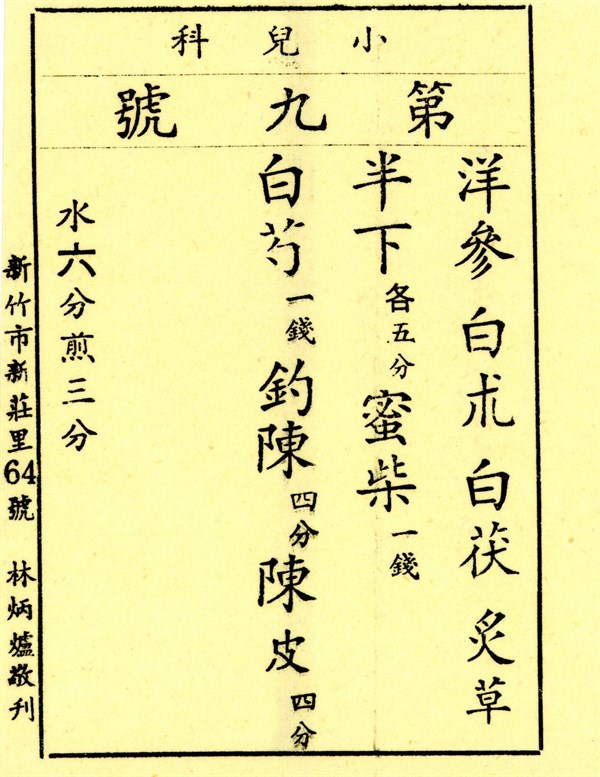 小兒科
第九號
洋參白朮白茯炙草
半下各五分蜜柴一錢
白芍一錢釣陳四分陳皮四分
水六分煎三分
新竹市新莊里64號 林炳爐敬刊